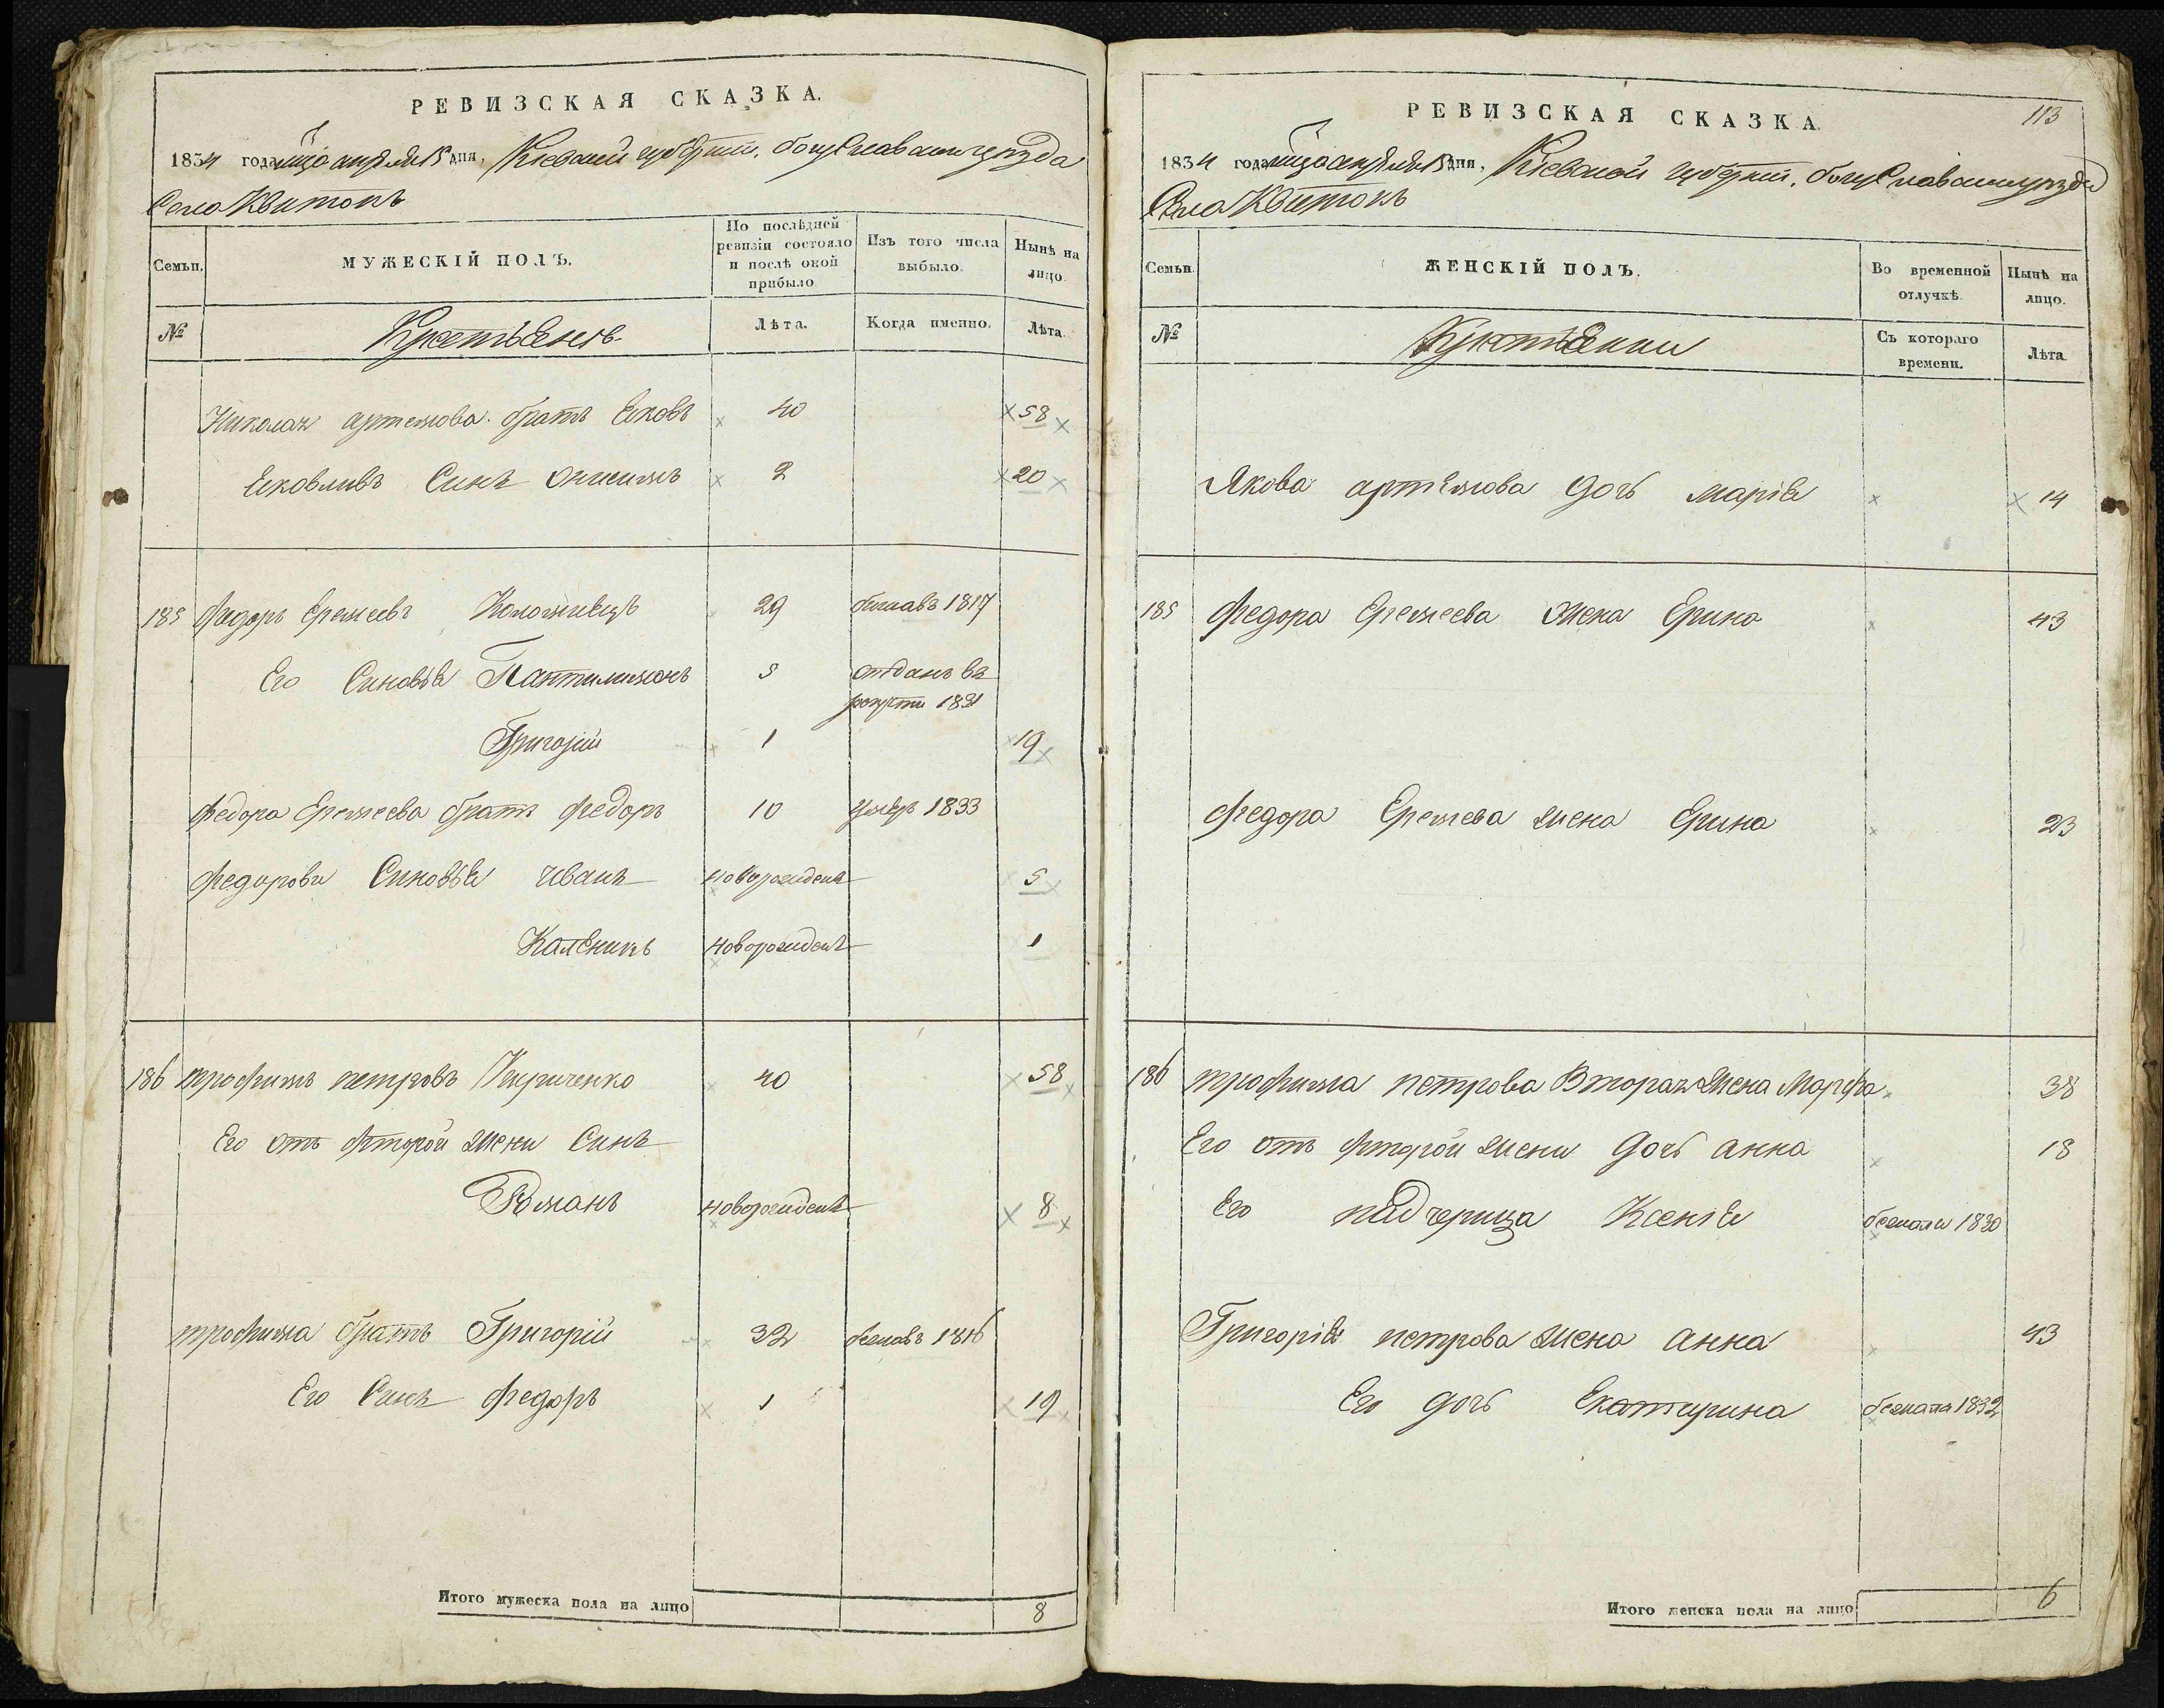 РЕВИЗСКАЯ СКАЗКА.
1834 года мца апреля 15 дня, Кіевской губерніи, богуславского уезда
Села Квитокъ
Семьи. МУЖЕСКІЙ ПОЛЪ. По послѣдней ревизіи состояло и послѣ оной прибыло Изъ того числа выбыло. Нынѣ на лицо.
№ Крестьяне Лѣта. Когда именно. Лѣта.
Николая артемова братъ Яковъ 40 58
Яковливъ Синъ Онисимъ 2 20
185 федоръ Еремеевъ Коломиецъ 29 бежавъ 1817
Его Синовья Пантилимонъ 5 отданъ въ
рекруты 1831
Григорій 1 19
федора Еремеева братъ федоръ 10 умеръ 1833
федорови Синовья иванъ новорожденъ 5
Каленикъ новорожденъ 1
186 трофимъ петровъ Кириченко 40 58
Его отъ фторой жени Синъ
Романъ новорожденъ 8
трофима братъ Григорій 32 бежавъ 1816
Его Синъ федоръ 1 19
Итого мужеска пола на лицо 8
113
РЕВИЗСКАЯ СКАЗКА
1834 года мца апреля 15 дня, Кіевской губерніи, богуславского уезда
Села Квитокъ
Семьи. ЖЕНСКІЙ ПОЛЪ. Во временной отлучкѣ. Нынѣ на лицо.
№ Крестьянки Съ котораго времени. Лѣта.
Якова артемова дочь марія 14
185 федора Еремеева жена Ерина 43
федора Еремева жена Ерина 23
186 трофима петрова Вторая жена Марфа 38
Его отъ фторой жени дочь анна 18
Его падчерица Ксенія бежала 1830
Григорія петрова жена анна 43
Его дочь Екатирина бежала 1832
Итого женска пола на лицо 6